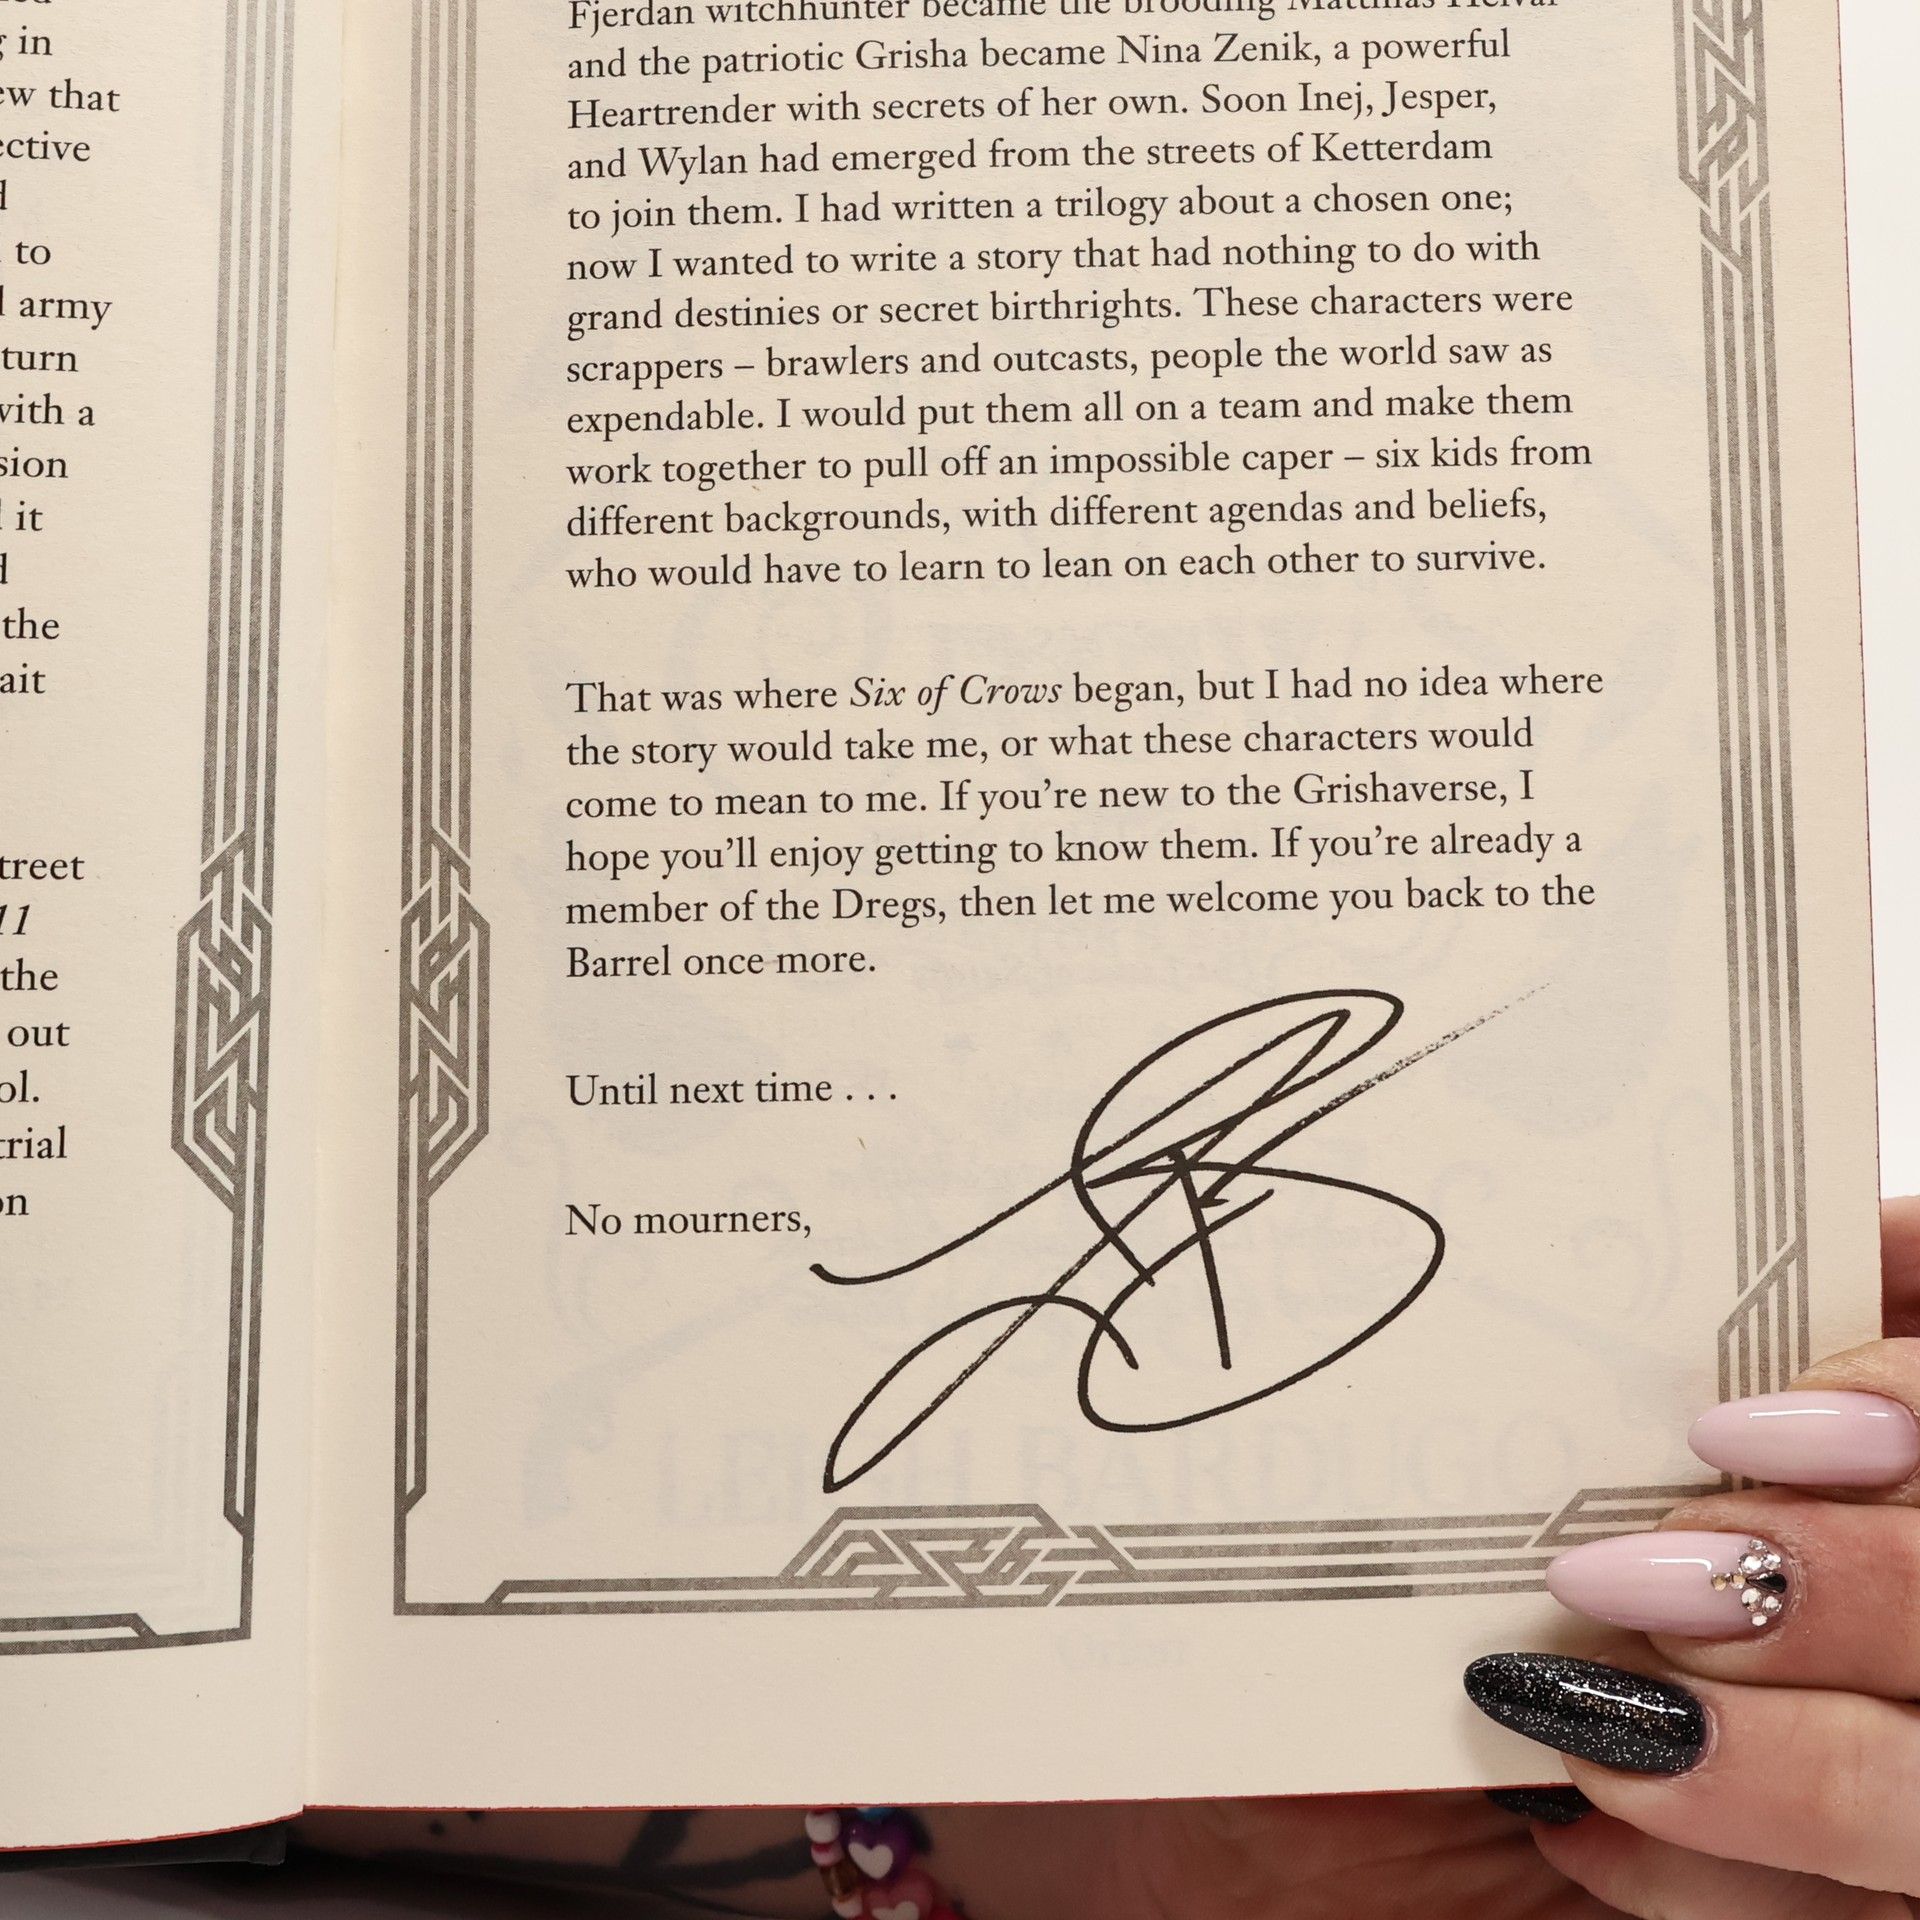 in
that
to
army
turn
with a
it
the
11
the
out
Fjerdan witchhunter became the brooding Matthias Helvar
and the patriotic Grisha became Nina Zenik, a powerful
Heartrender with secrets of her own. Soon Inej, Jesper,
and Wylan had emerged from the streets of Ketterdam
to join them. I had written a trilogy about a chosen one;
now I wanted to write a story that had nothing to do with
grand destinies or secret birthrights. These characters were
scrappers – brawlers and outcasts, people the world saw as
expendable. I would put them all on a team and make them
work together to pull off an impossible caper – six kids from
different backgrounds, with different agendas and beliefs,
who would have to learn to lean on each other to survive.
That was where Six of Crows began, but I had no idea where
the story would take me, or what these characters would
come to mean to me. If you’re new to the Grishaverse, I
hope you’ll enjoy getting to know them. If you’re already a
member of the Dregs, then let me welcome you back to the
Barrel once more.
Until next time . . .
No mourners,